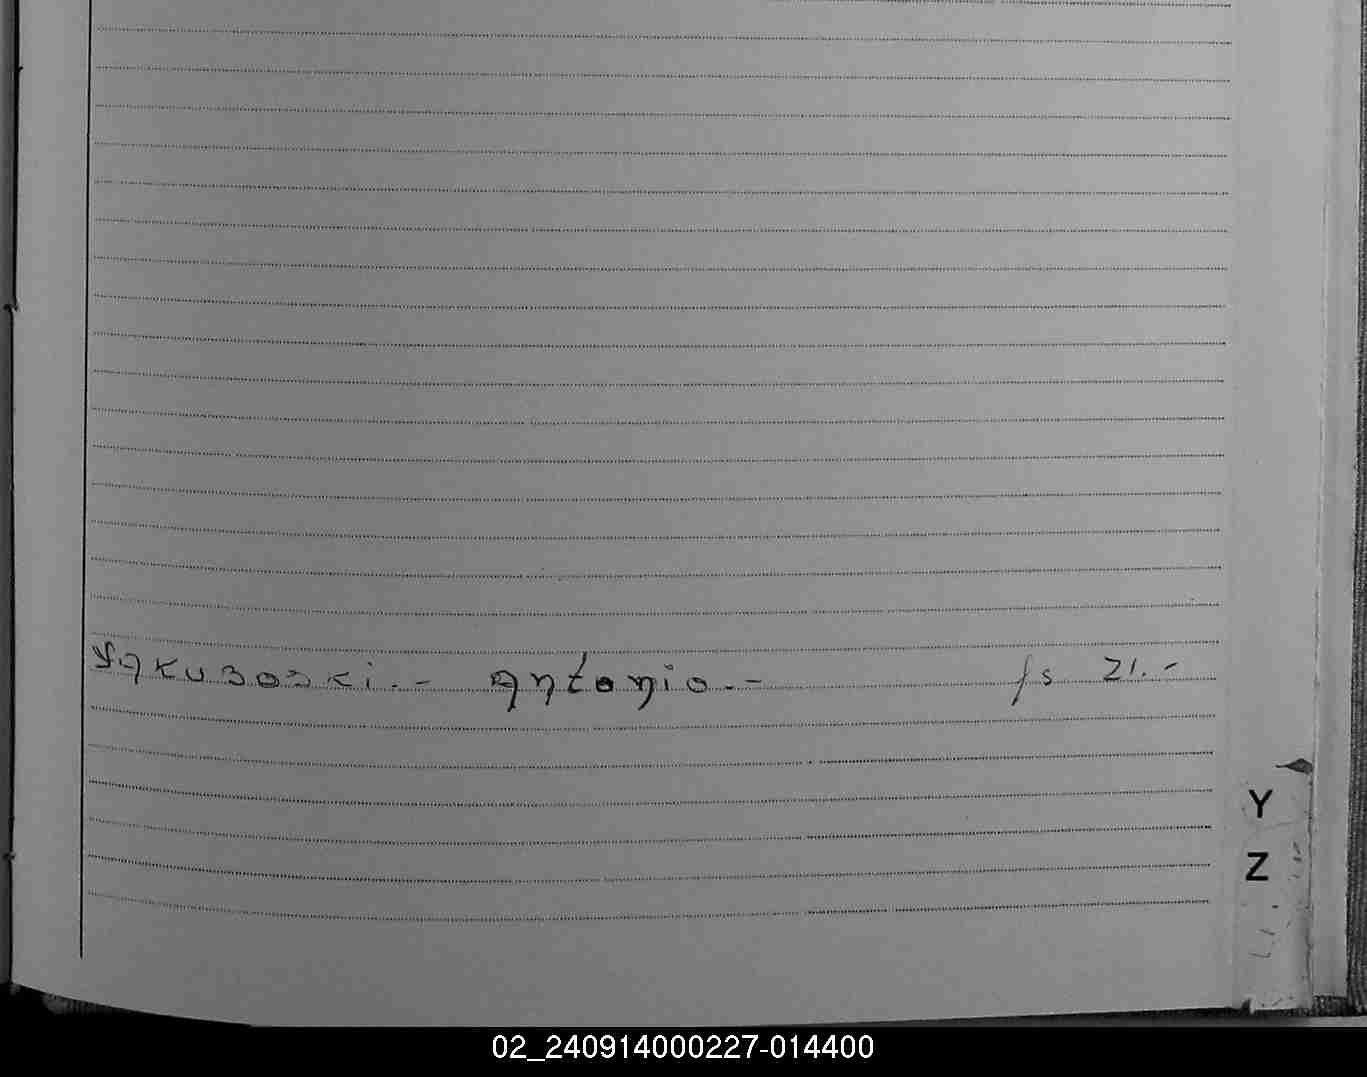 Yakuboski.- Antonio.- fs 21.-
Y
Z
02_240914000227-014400